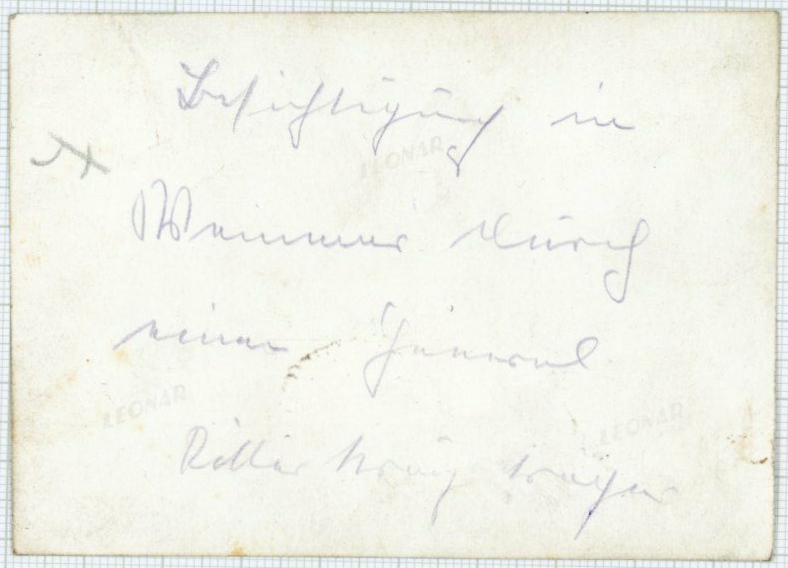 Besichtigung in
Weimar durch
einen General
Ritterkreuzträger
LEONAR
LEONAR
LEONAR